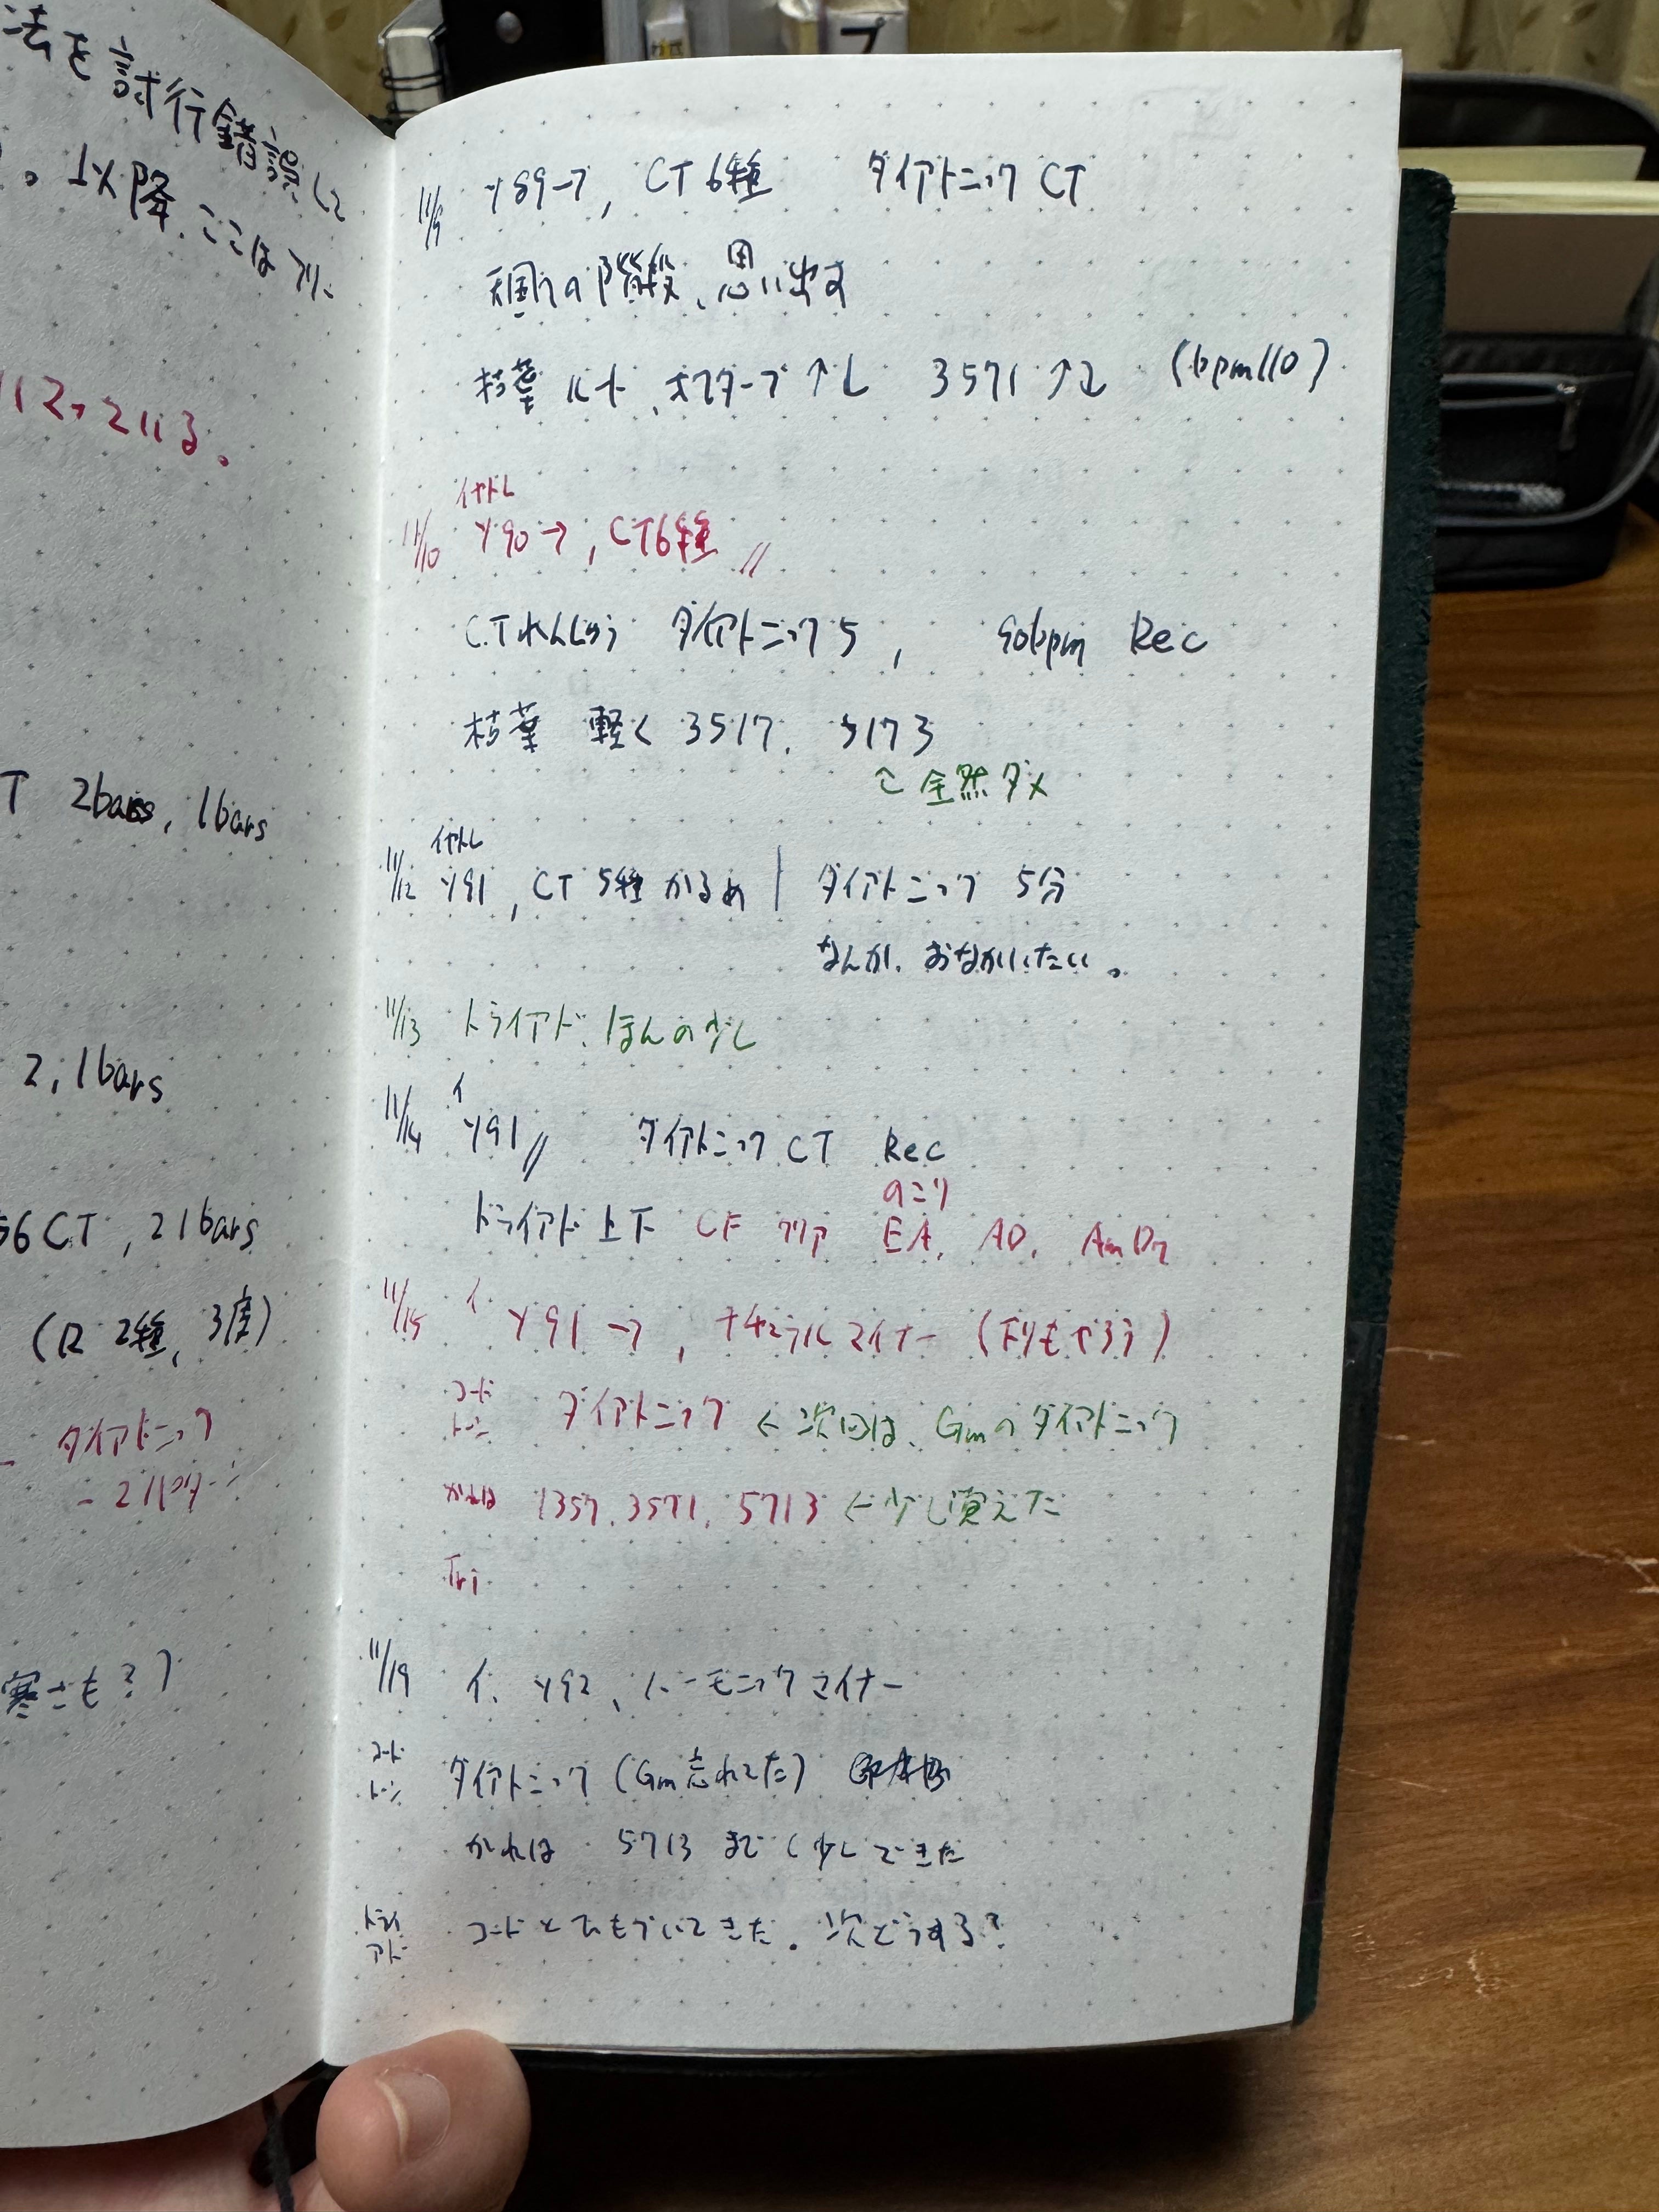 法を試行錯誤して
。以降、ここは
っている。
T 2bars, 1bars
2, 1bars
56 CT, 2 1bars
(R 2種、3度)
ダイアトニック
寒さも?
11/9 Y89→, CT 6種 ダイアトニック CT
の階段、思い出す
枯葉 ルート、オクターブ↑↓ 3571↑↓ (bpm110)
イヤトレ
11/10 Y90→, CT6種 //
C.Tれんしゅう ダイアトニック5, 90bpm Rec
枯葉 軽く 3517. 5173
↑全然ダメ
イヤトレ
11/12 Y91, CT 5種 かるめ | ダイアトニック 5分
なんか、おなかいたい。
11/13 トライアド、ほんの少し
イ
11/14 Y91// ダイアトニック CT Rec
のこり
トライアド上下 CF クリア EA, AD, AmD7
11/15 イ Y91→, ナチュラルマイナー (下りもやろう)
コードトーン ダイアトニック ←次回は、Gmのダイアトニック
かれは 1357, 3571, 5713 ←少し覚えた
Tri
11/19 イ、Y92、ハーモニックマイナー
コードトーン ダイアトニック (Gm忘れてた)
かれは 5713 まで 少しできた
トライアド コードとひもづいてきた。次どうする?